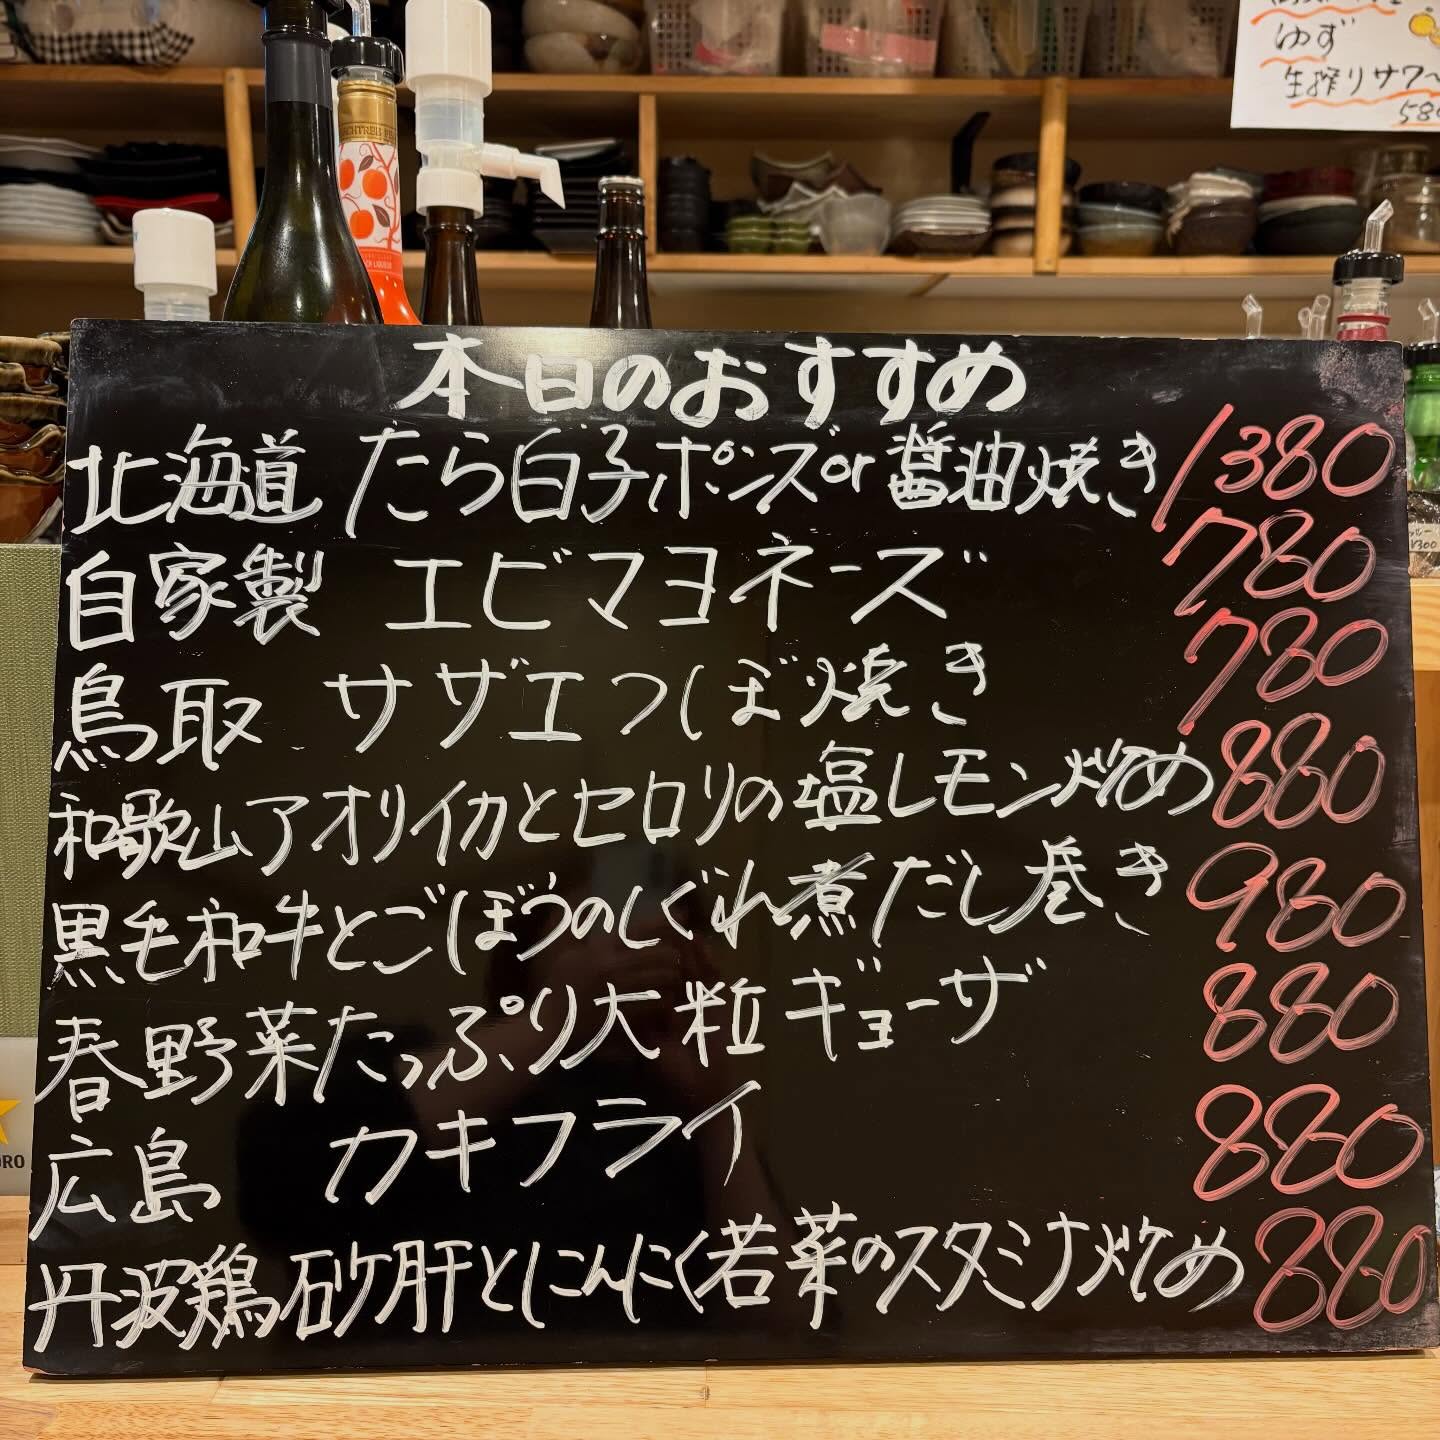 ゆず
生搾りサワー
580
本日のおすすめ
北海道 たら白子ポンズor醤油焼き 1380
自家製 エビマヨネーズ 780
鳥取 サザエつぼ焼き 780
和歌山アオリイカとセロリの塩レモン炒め 880
黒毛和牛とごぼうのしぐれ煮だし巻き 980
春野菜たっぷり大粒ギョーザ 880
広島 カキフライ 880
丹波鶏砂肝とにんにく若菜のスタミナ炒め 880